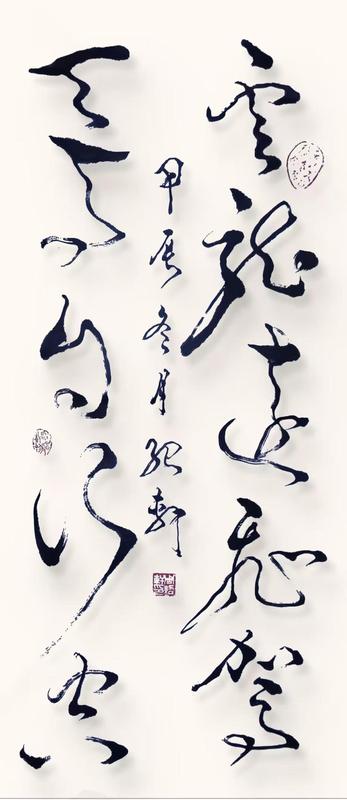 雲龍遠飛駕
天馬自行空
甲辰冬月 軒